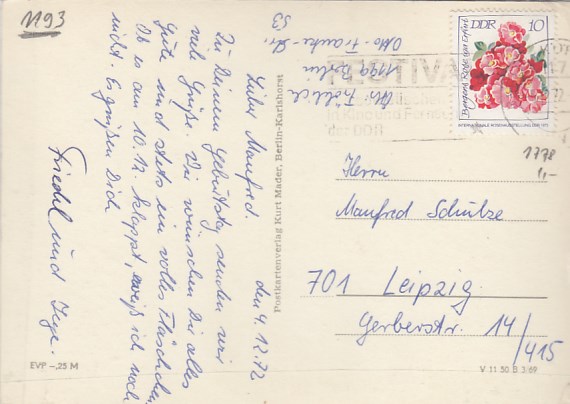 1193
Lieber Manfred.
den 4.12.72
Zu Deinem Geburtstag senden wir
viele Grüße. Wir wünschen Dir alles
Gute und stets ein volles Fläschchen.
Ob es am 10.12. klappt, weiß ich noch
nicht. Es grüßen Dich
Friedel und Inge.
EVP –,25 M
Postkartenverlag Kurt Mader, Berlin-Karlshorst
1199 Berlin
Otto-Franke-Str.
53
DDR 10
FESTIVAL
in Kino und Fernsehen
der DDR
1778
1,–
Herrn
Manfred Schulze
701 Leipzig
Gerberstr. 14/415
V 11 50 B 3/69